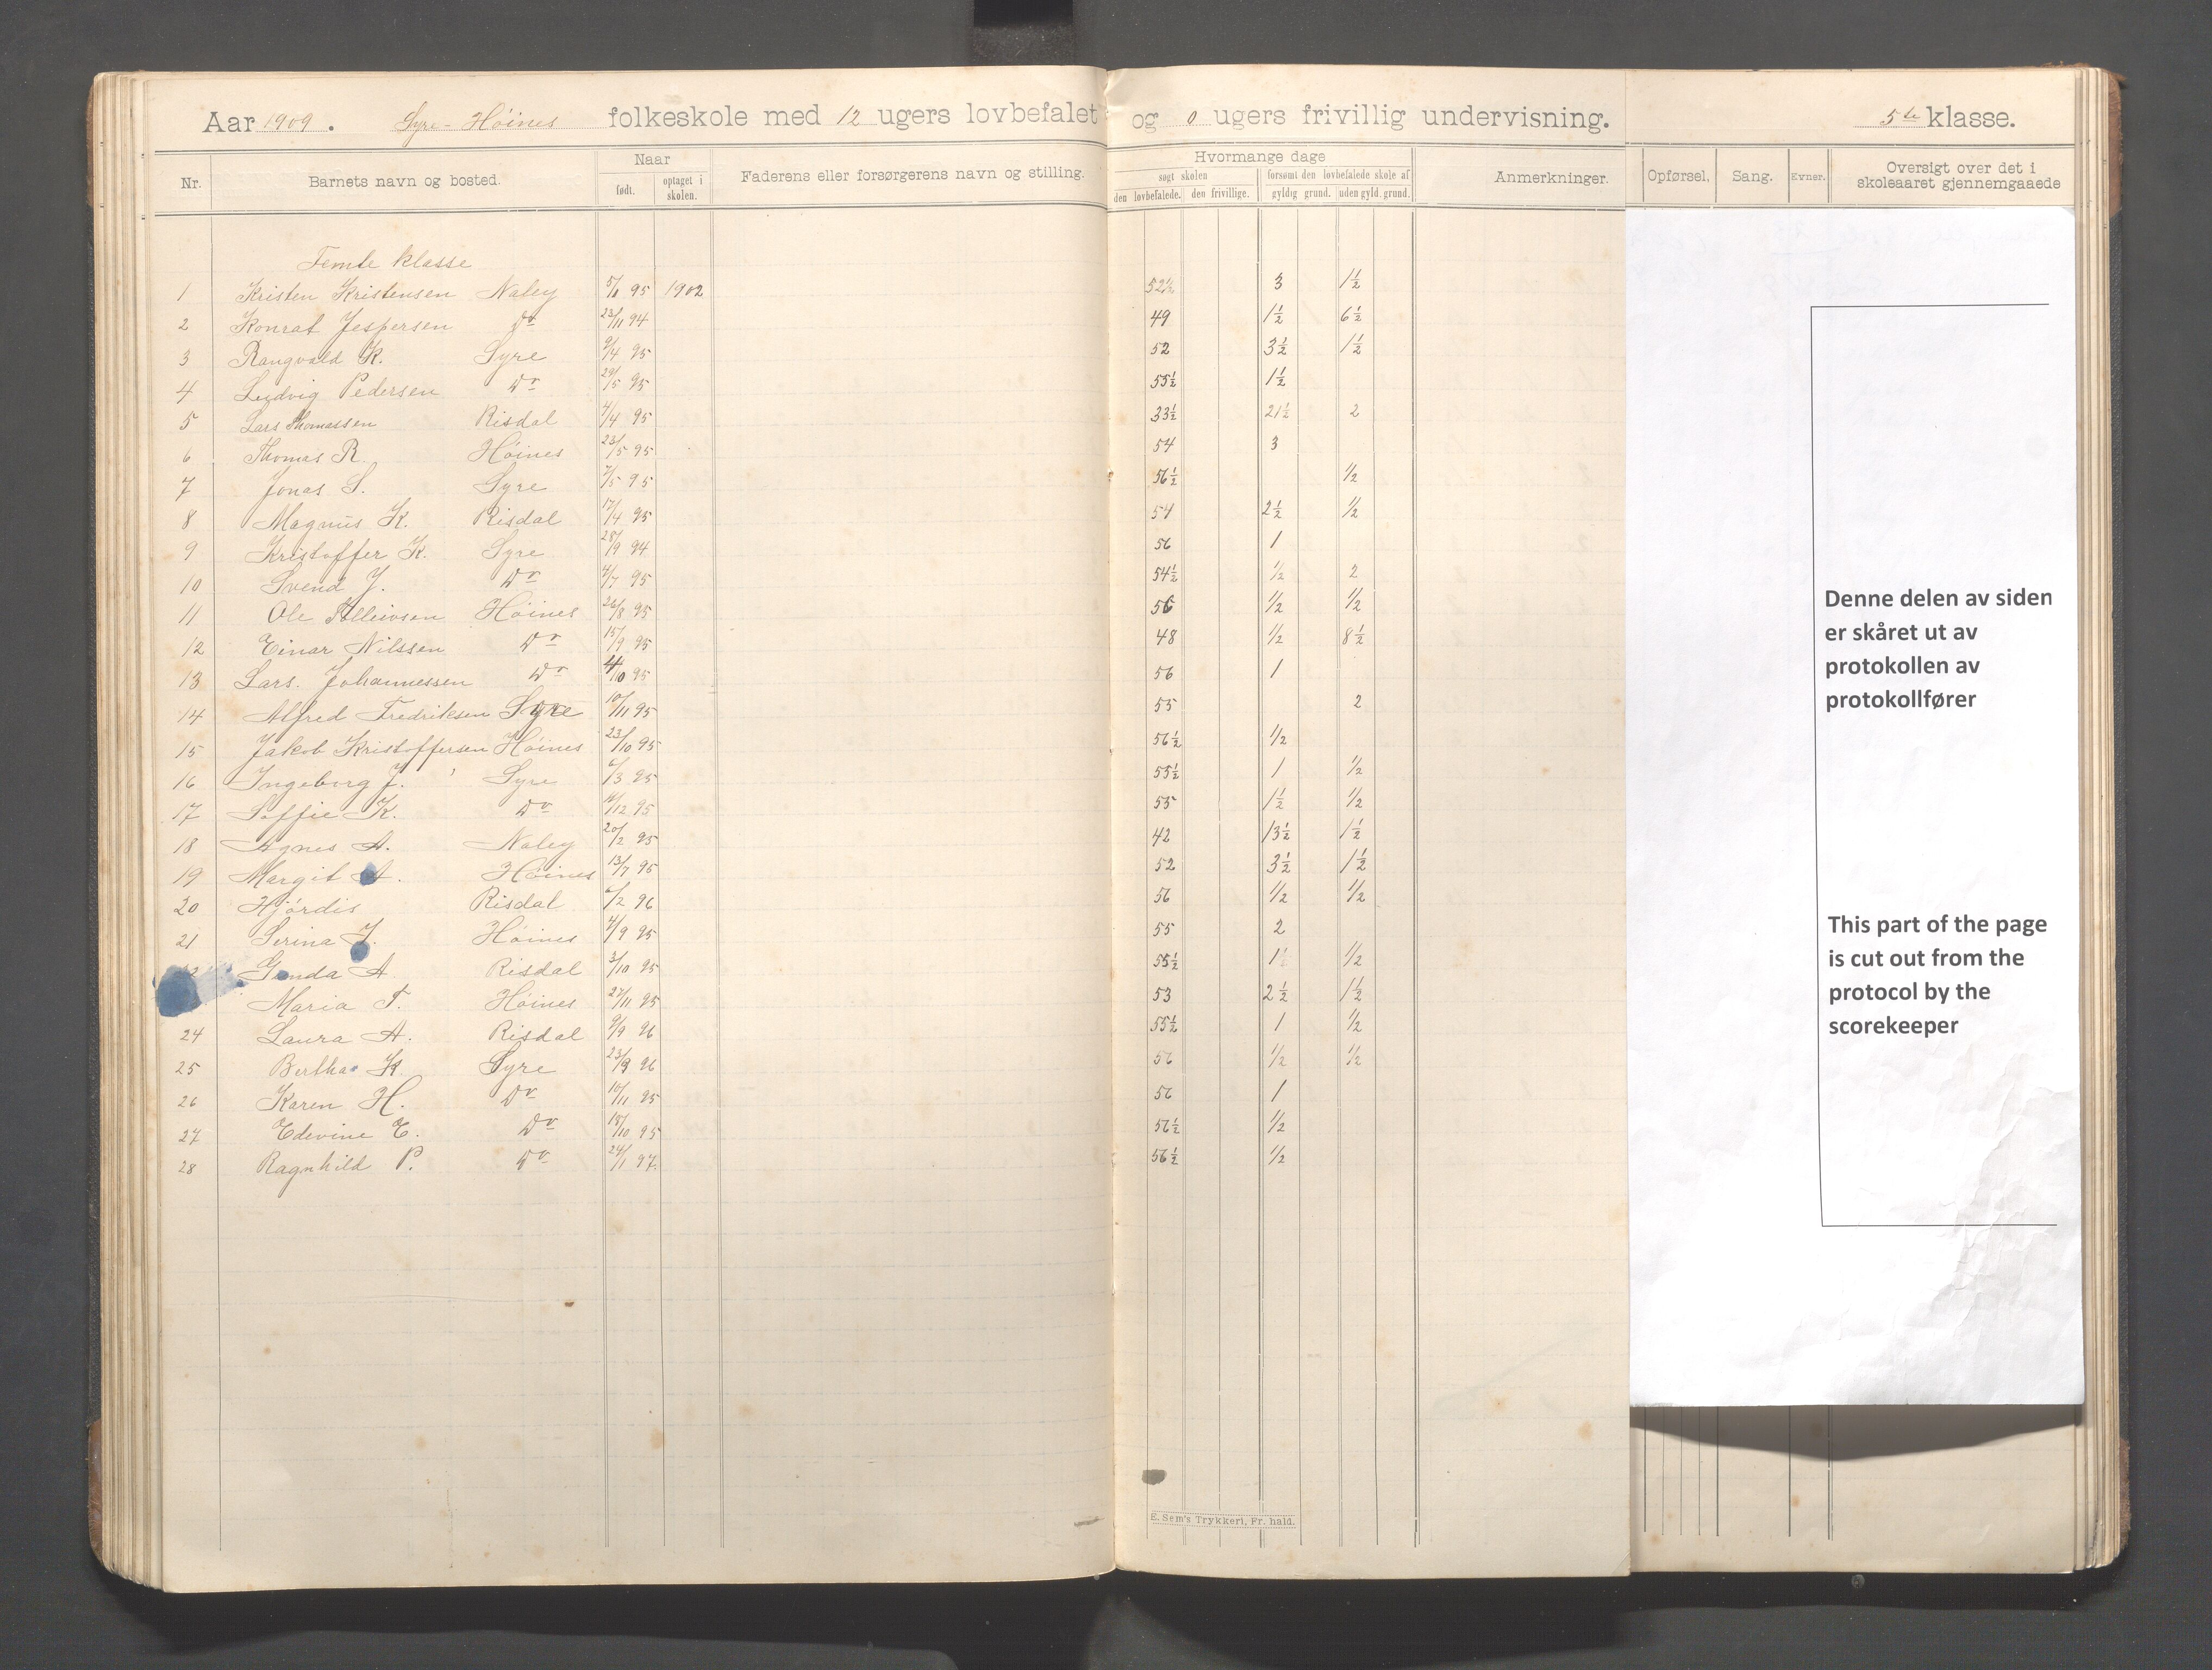 Aar 1909. Syre-Höines folkeskole med 12 ugers lovbefalet og 0 ugers frivillig undervisning. 5te klasse.
Nr. Barnets navn og bosted. Naar født. optaget i skolen. Faderens eller forsørgerens navn og stilling. Hvormange dage søgt skolen den lovbefalede. den frivillige. forsømt den lovbefalede skole af gyldig grund. uden gyld. grund. Anmerkninger. Opførsel. Sang. Evner. Oversigt over det i skoleaaret gjennemgaaede
Femte klasse
1 Kristen Kristensen Naley 5/1 95 1902 52½ 3 1½
2 Konrat Jespersen Do 23/11 94 49 1½ 6½
3 Rangvald K. Syre 9/4 95 52 3½ 1½
4 Ludvig Pedersen Do 29/5 95 55½ 1½
5 Lars Thomassen Risdal 4/4 95 33½ 21½ 2
6 Thomas R. Höines 23/5 95 54 3
7 Jonas S. Syre 7/5 95 56½ ½
8 Magnus K. Risdal 17/4 95 54 2½ ½
9 Kristoffer K. Syre 28/9 94 56 1
10 Svend J. Do 4/7 95 54½ ½ 2
11 Ole Höines 26/8 95 56 ½ ½
12 Einar Nilssen Do 15/9 95 48 ½ 8½
13 Lars. Johannessen Do 4/10 95 56 1
14 Alfred Fredriksen Syre 10/11 95 55 2
15 Jakob Kristoffersen Höines 23/10 95 56½ ½
16 Ingeborg J. Syre 6/3 95 55½ 1 ½
17 Soffie K. Do /12 95 55 1½ ½
18 Agnes A. Naley 20/2 95 42 13½ 1½
19 Margit A. Höines 13/7 95 52 3½ 1½
20 Hjördis Risdal 6/2 96 56 ½ ½
21 Serina J. Höines 4/9 95 55 2
Gunda A. Risdal 3/10 95 55½ 1½ ½
Maria T. Höines 27/11 95 53 2½ 1½
24 Laura A. Risdal 9/9 96 55½ 1 ½
25 Bertha K Syre 23/9 96 56 ½ ½
26 Karen H. Do 10/11 95 56 1
27 Edevine E. Do 18/10 95 56½ ½
28 Ragnhild P. Do 24/1 97. 56½ ½
E. Sem's Trykkeri, Fr. hald.
Denne delen av siden
er skåret ut av
protokollen av
protokollfører
This part of the page
is cut out from the
protocol by the
scorekeeper